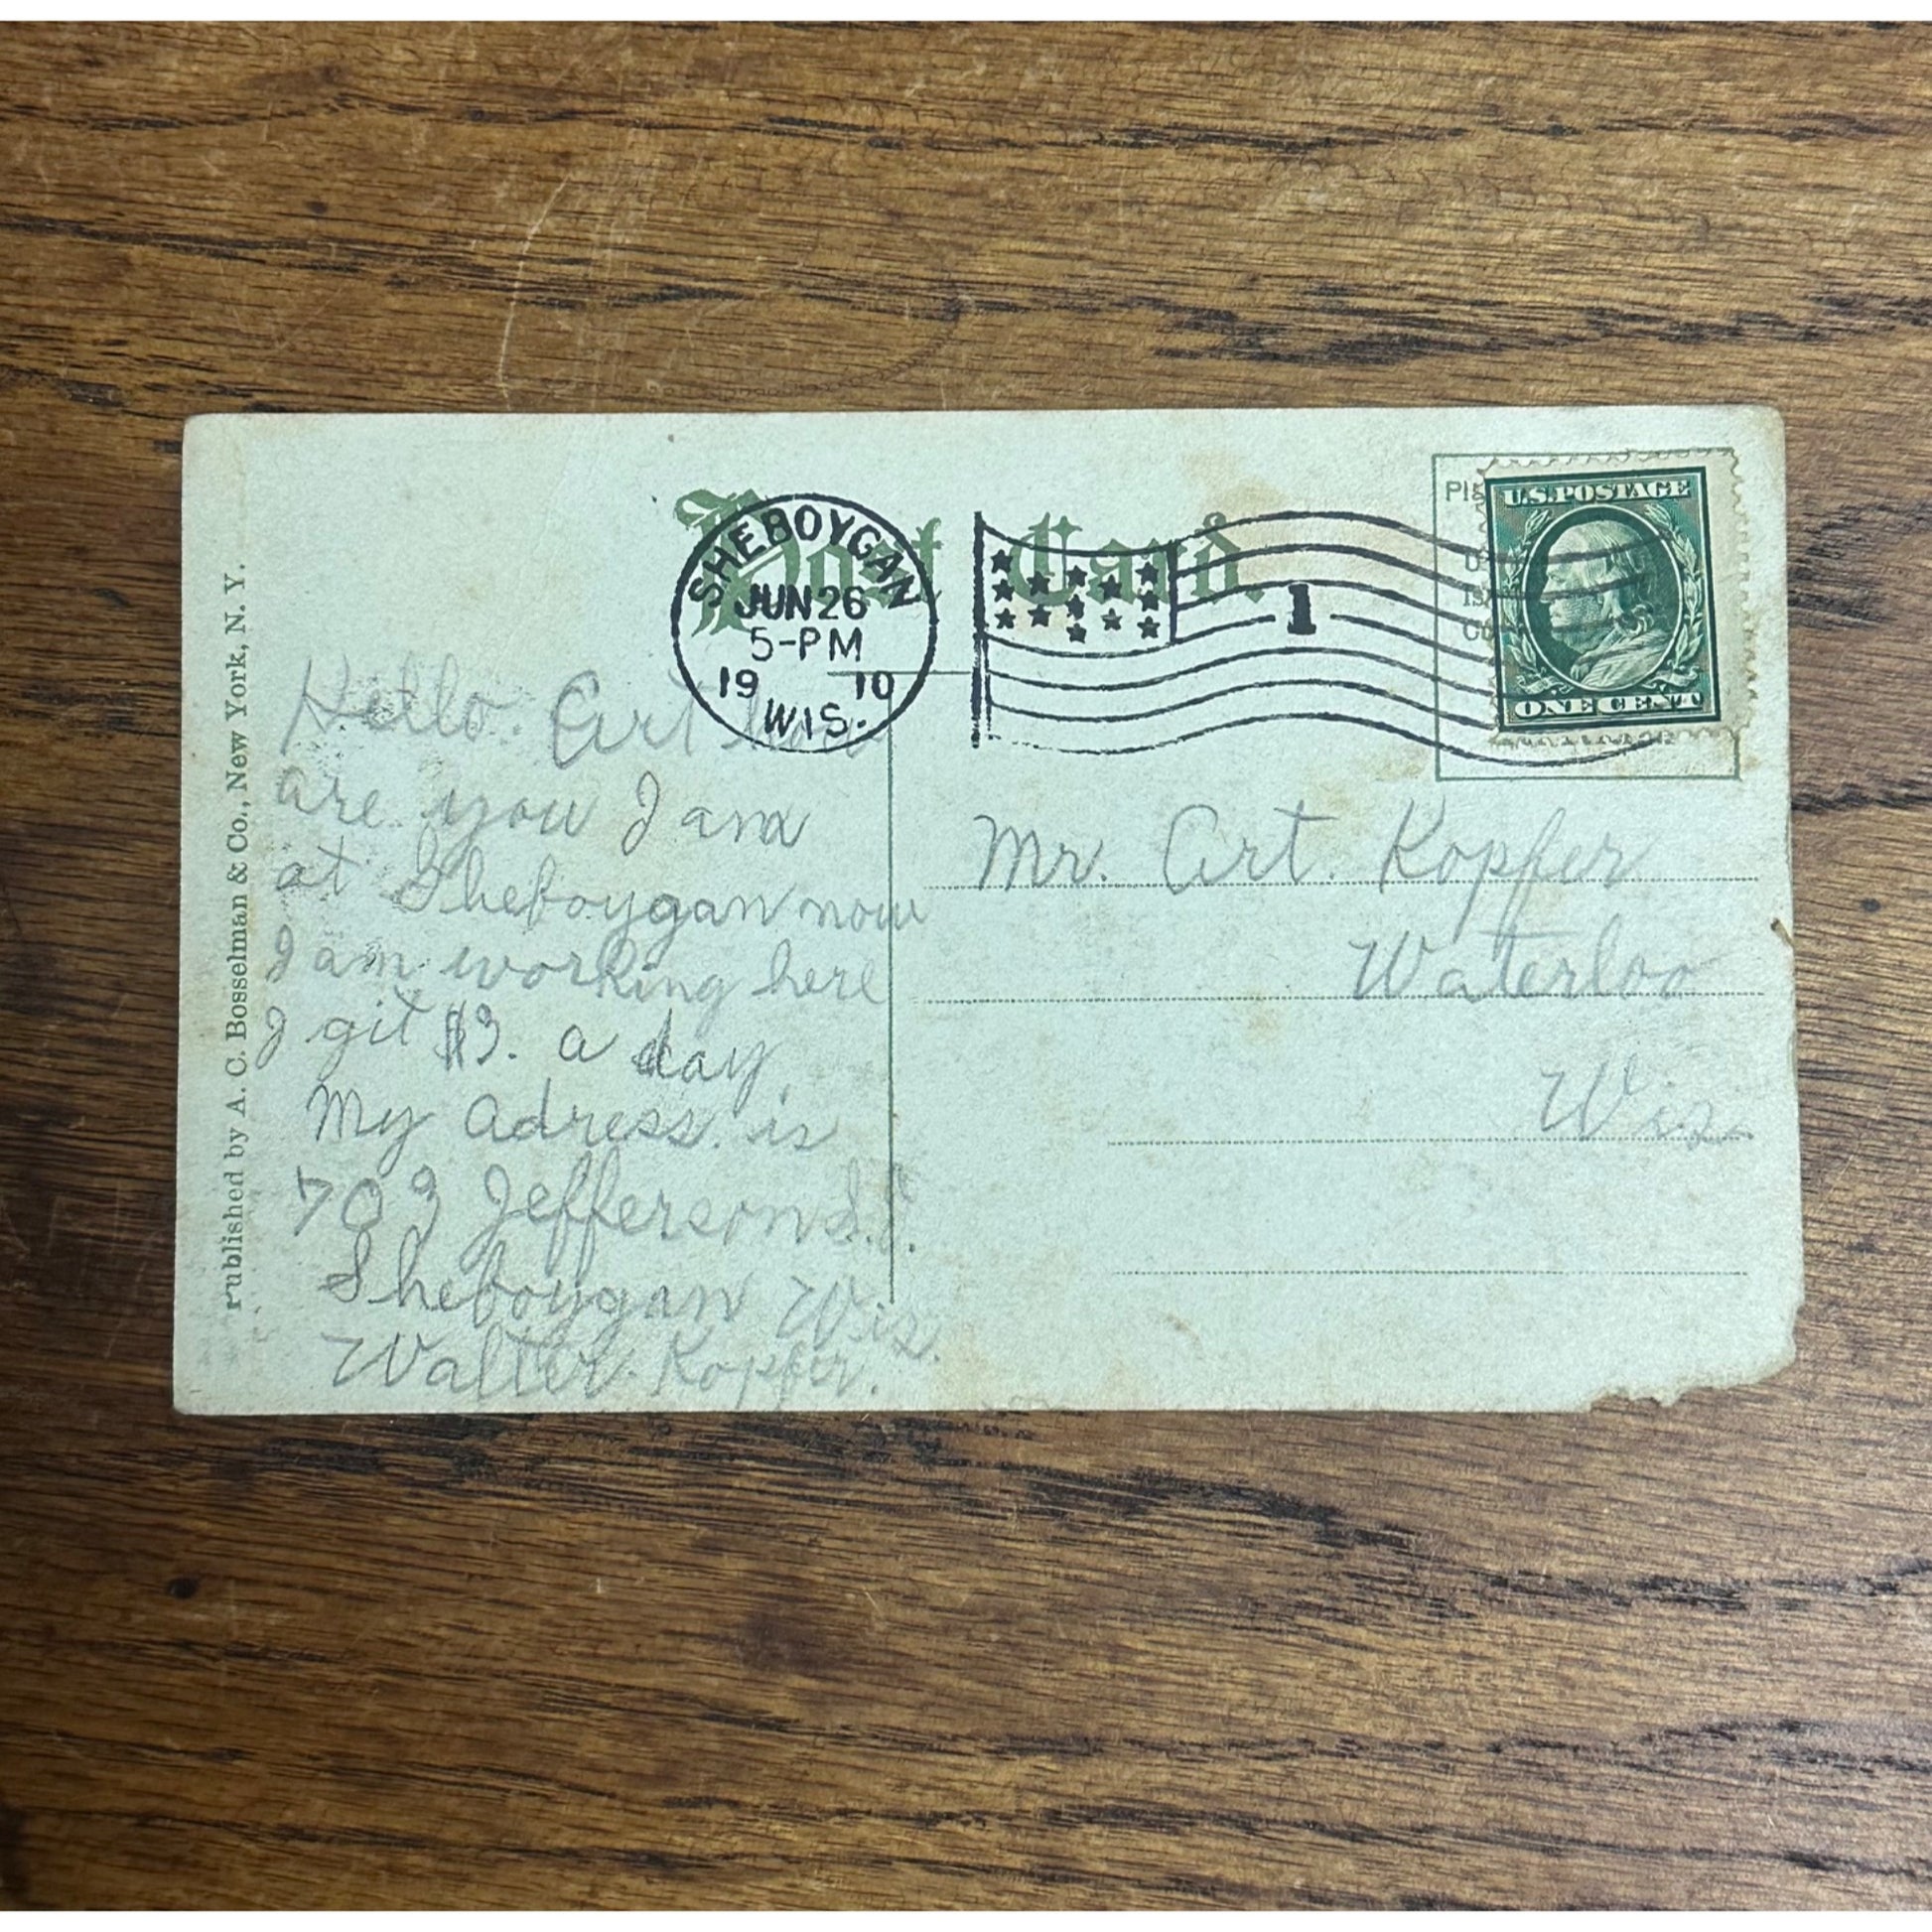 Post Card.
SHEBOYGAN
JUN 26
5-PM
19 10
WIS.
1
U.S. POSTAGE
ONE CENT
Published by A. C. Bosselman & Co., New York, N. Y.
Hello. Art how
are you I am
at Sheboygan now
I am working here
I git $3. a day,
My adress. is
703 Jefferson S.t.
Sheboygan Wis.
Walter Kopfer.
Mr. Art. Kopfer
Waterloo
Wis.